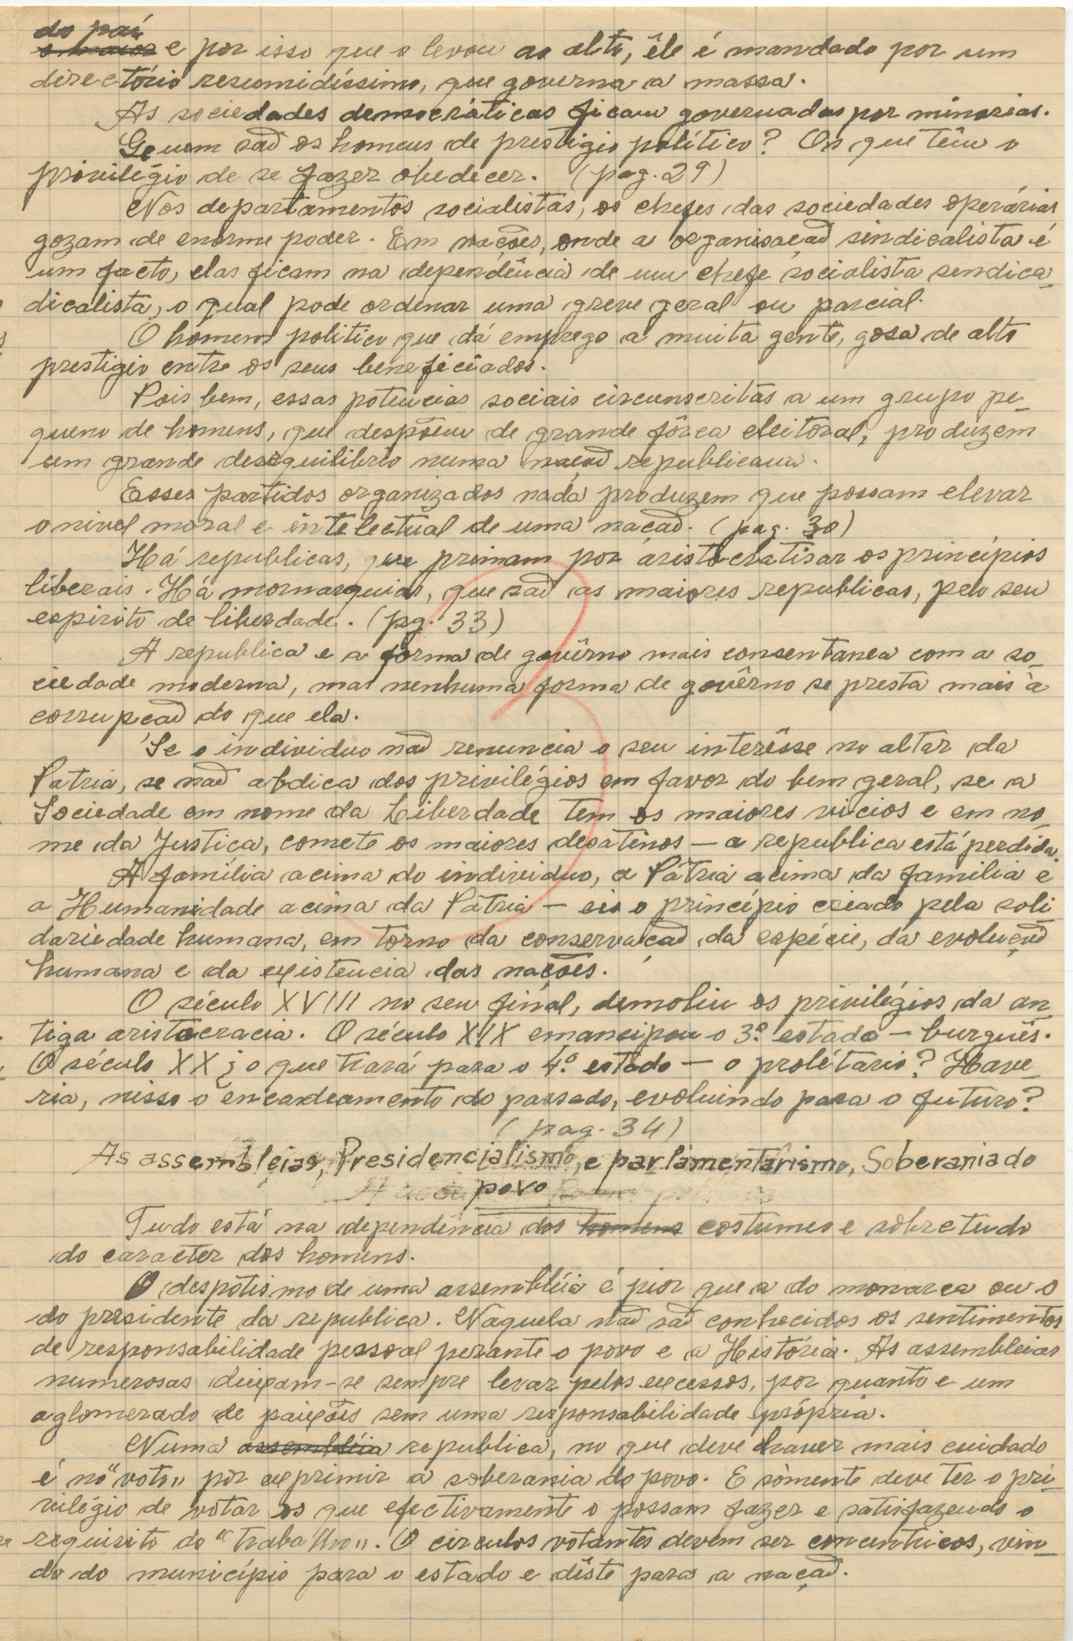 do país
e por isso que o levou ao alto, êle é mandado por um
directório resumidíssimo, que governa a massa.
As sociedades democráticas ficam governadas por minorias.
Quem saõ os homens de prestigio político? Os que têm o
privilégio de se fazer obedecer. (pag. 29)
Nos departamentos socialistas, os chefes das sociedades operárias
gozam de enorme poder. Em nações, onde a organisaçaõ sindicalista é
um facto, elas ficam na dependência de um chefe socialista sindica-
dicalista, o qual pode ordenar uma greve geral ou parcial.
O homem politico que dá emprego a muita gente, gosa de alto
prestigio entre os seus beneficiados.
Pois bem, essas potencias sociais circunscritas a um grupo pe-
queno de homens, que despõem de grande fôrca eleitoral, produzem
um grande desequilibrio numa naçaõ republicana.
Esses partidos organizados nada produzem que possam elevar
o nivel moral e intelectual de uma naçaõ. (pag. 30)
Há republicas, que primam por áristocratisar os princípios
liberais. Há mornarquias, que saõ as maiores republicas, pelo seu
espirito de liberdade. (pg. 33)
A republica e a forma de govêrno mais consentanea com a so-
ciedade moderna, mas nenhuma forma de govêrno se presta mais à
corrupçaõ do que ela.
Se o individuo naõ renuncia o seu interêsse no altar da
Patria, se naõ abdica dos privilégios em favor do bem geral, se a
Sociedade em nome da Liberdade tem os maiores vicios e em no-
me da Justica, comete os maiores desatinos — a republica está perdida.
A família acima do individuo, a Pátria acima da família e
a Humanidade acima da Patria — eis o princípio criado pela soli
dariedade humana, em torno da conservaçaõ da espécie, da evoluçaõ
humana e da existencia das nações.
O século XVIII no seu final, demoliu os privilégios da an-
tiga aristocracia. O século XIX emancipou o 3º estado — burguês.
O século XX ¿ o que trará para o 4º estado — o prolétario? Have-
ria, nisso o encadeamento do passado, evoluindo para o futuro?
(pag. 34)
As assembléias, Presidencialismo, e parlamentarismo, Soberania do
povo
Tudo está na dependência dos homens costumes e sobretudo
do caracter dos homens.
O despótismo de uma assembléia é pior que a do monarca ou o
do presidente da republica. Naquela naõ saõ conhecidos os sentimentos
de responsabilidade pessoal perante o povo e a História. As assembleias
numerosas deixam-se sempre levar pelos excessos, por quanto e um
aglomerado de paixões sem uma responsabilidade própria.
Numa assembléia republica, no que deve haver mais cuidado
é no "voto" por exprimir a soberania do povo. E sòmente deve ter o pri-
vilégio de votar os que efectivamente o possam fazer e satisfazendo o
requisito do "trabalho". O circulos votantes devem ser concentricos, vin-
do do município para o estado e dêste para a naçaõ.